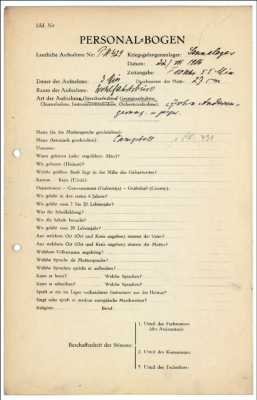 Lfd. Nr.
PERSONAL-BOGEN
Lautliche Aufnahme Nr.: PK 429 Kriegsgefangenenlager: Sennelager
Datum:
Zeitangabe: 10 Uhr 55 Min
Dauer der Aufnahme: 2 Min Durchmesser der Platte: 27 cm
Raum der Aufnahme:
Art der Aufnahme (Sprechaufnahme, Gesangsaufnahme, John Anderson,
Choraufnahme, Instrumentenaufnahme, Orchesteraufnahme):
Name (in der Muttersprache geschrieben):
Name (lateinisch geschrieben): Campbell
Vorname:
Wann geboren (oder ungefähres Alter)?
Wo geboren (Heimat)?
Welche größere Stadt liegt in der Nähe des Geburtsortes?
Kanton – Kreis (Ujedz):
Departement – Gouvernement (Gubernija) – Grafschaft (County):
Wo gelebt in den ersten 6 Jahren?
Wo gelebt vom 7. bis 20. Lebensjahr?
Was für Schulbildung?
Wo die Schule besucht?
Wo gelebt vom 20. Lebensjahr?
Aus welchem Ort (Ort und Kreis angeben) stammt der Vater?
Aus welchem Ort (Ort und Kreis angeben) stammt die Mutter?
Welchem Volksstamm angehörig?
Welche Sprache als Muttersprache?
Welche Sprachen spricht er außerdem?
Kann er lesen? Welche Sprachen?
Kann er schreiben? Welche Sprachen?
Spielt er ein im Lager vorhandenes Instrument aus der Heimat?
Singt oder spielt er modern europäische Musikweisen?
Religion: Beruf:
1. Urteil des Fachmannes
(des Assistenten):
Beschaffenheit der Stimme:
2. Urteil des Kommissars:
3. Urteil des Technikers: